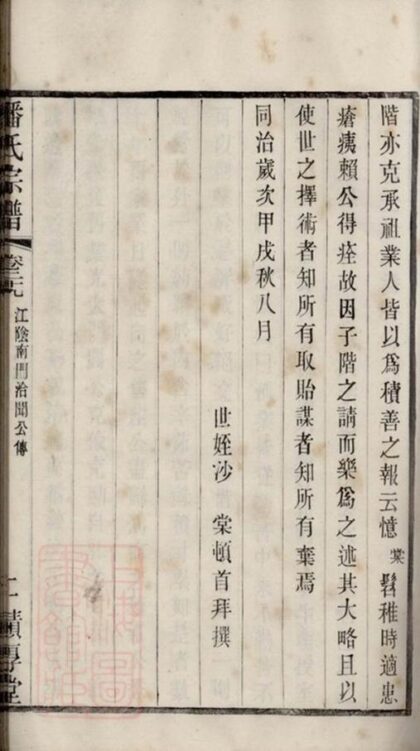 階亦克承祖業人皆以為積善之報云憶棠髫稚時適患
瘡痍賴公得痊故因子階之請而樂為之述其大略且以
使世之擇術者知所有取貽謀者知所有棄焉
同治歲次甲戌秋八月
世姪沙棠頓首拜撰
潘氏宗譜
卷三九
江陰南門治聞公傳
二